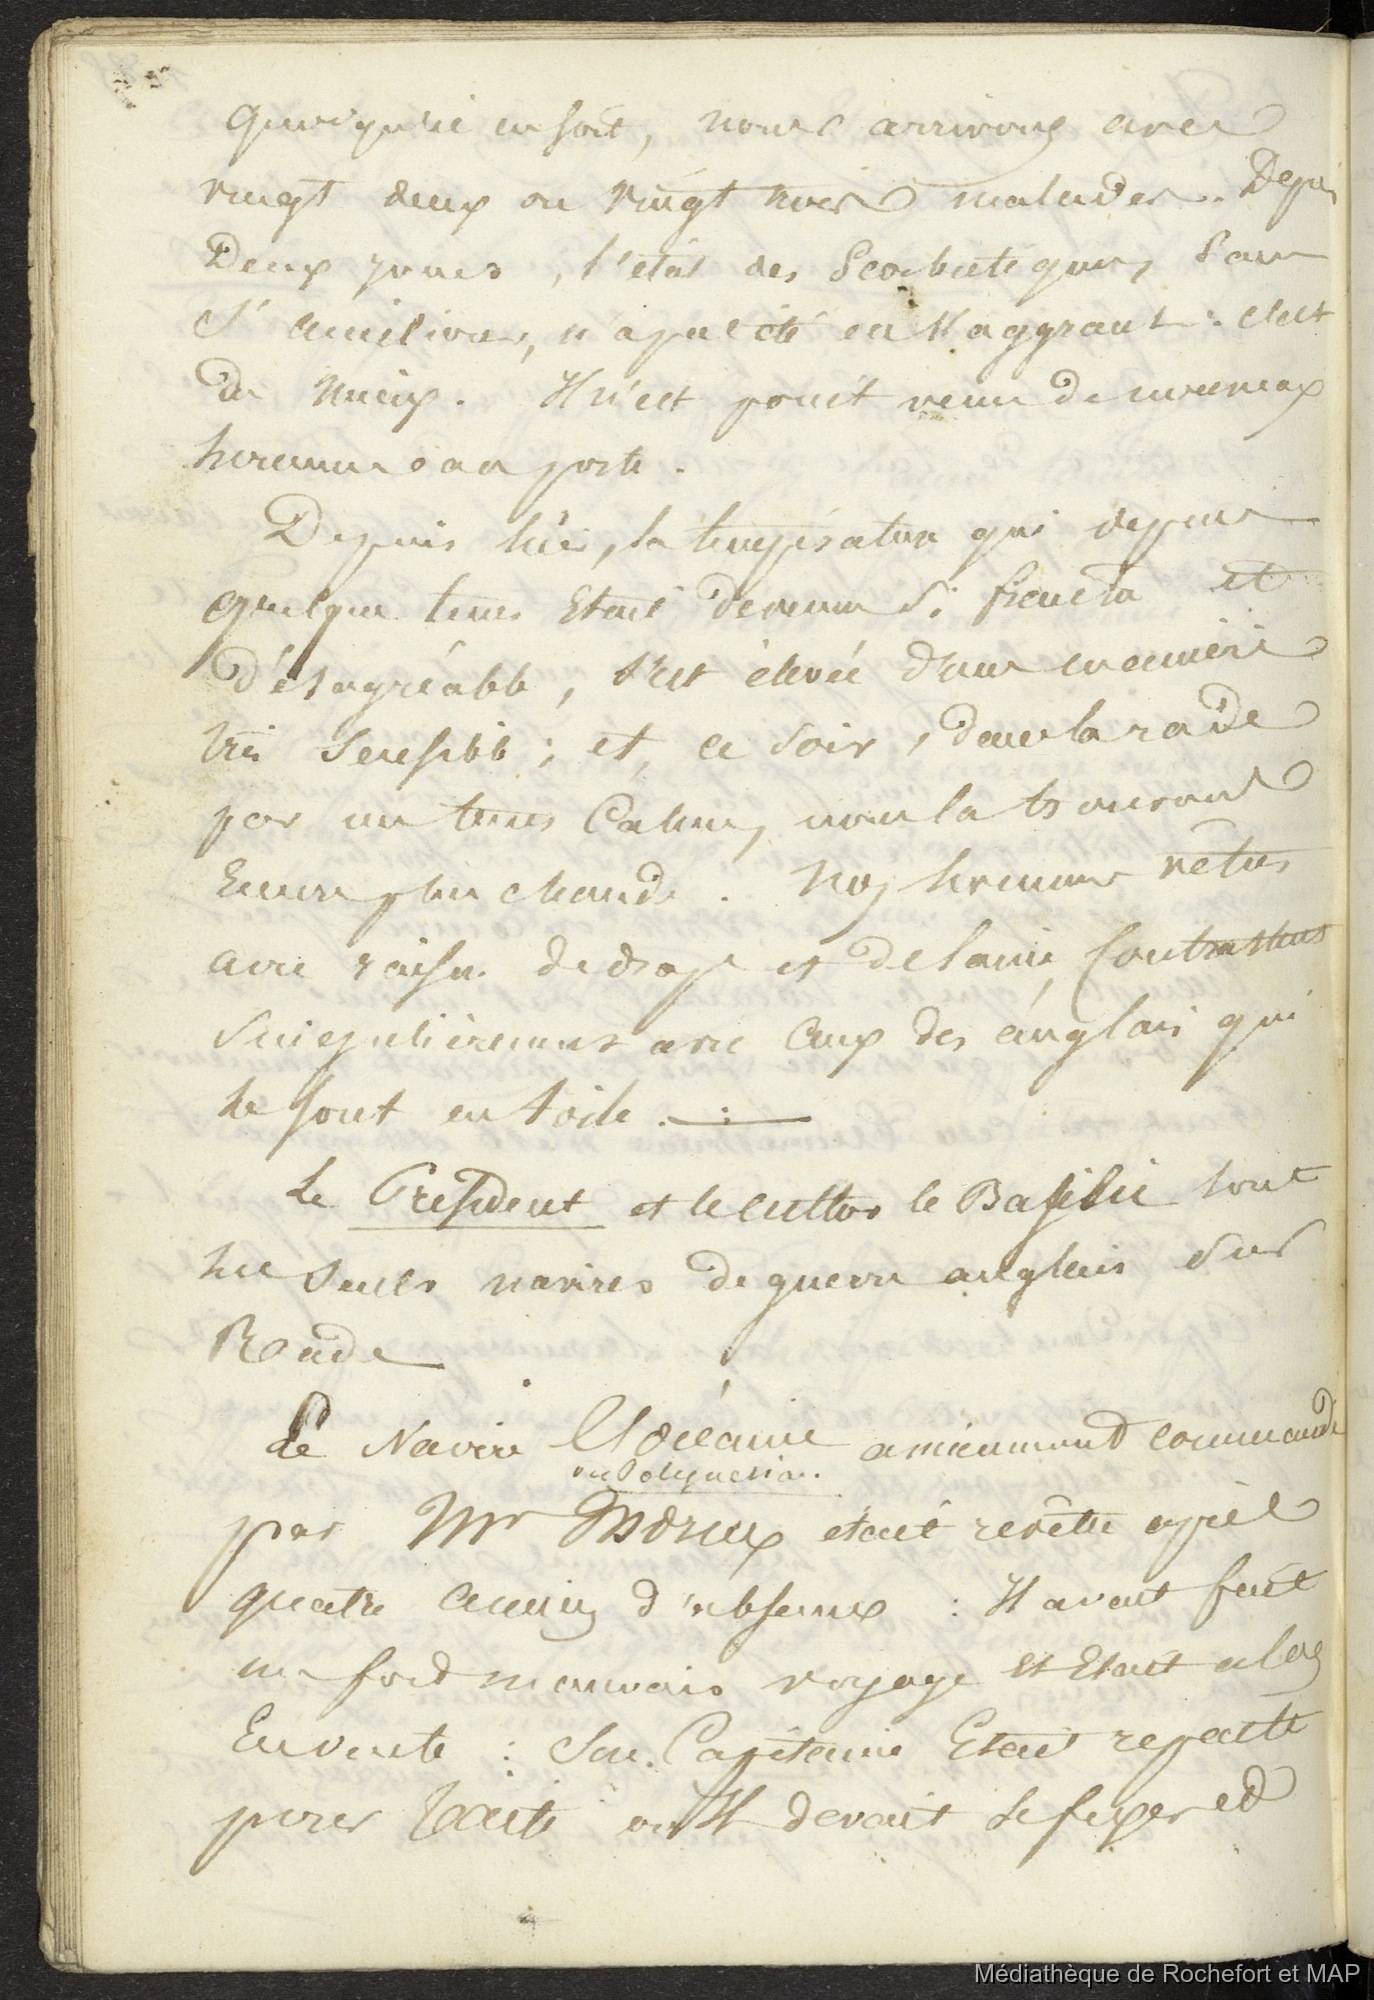 Quoiqu'il en soit, nous arrivons avec
vingt deux ou vingt trois malades. Depuis
Deux jours, l'état des Scorbutiques, Sans
S'améliorer, n'a pas été en s'aggravant : c'est
du mieux. Il n'est point venu de nouveaux
hommes au poste.
Depuis hier, la température qui depuis
quelque tems Etait devenue Si froide et
désagréable, s'est élevée d'une manière
très Sensible ; et, ce Soir, dans la rade
par un tems Calme, nous la trouvons
Encore plus chaude. Nos hommes vêtus
avec raison de drap et de laine, Contrastent
Singulièrement avec Ceux des anglais qui
le sont en toile.
Le Président et le cutter le Basilic sont
les Seuls navires de guerre anglais Sur
Rade
Le Navire L'Océanie anciennement commandé
ou Polynesian.
par Mr Moreux était rentré après
quatre années d'absence : Il avait fait
un fort mauvais voyage et Etait alors
En vente : Son Capitaine Etait reparti
pour Taiti où Il devait se fixer et
Médiathèque de Rochefort et MAP